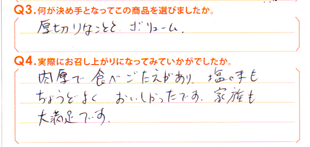 Q3.何が決め手となってこの商品を選びましたか。
厚切りなことと ボリューム.
Q4.実際にお召し上がりになってみていかがでしたか。
肉厚で食べごたえがあり、塩味も
ちょうどよく おいしかったです. 家族も
大満足です.